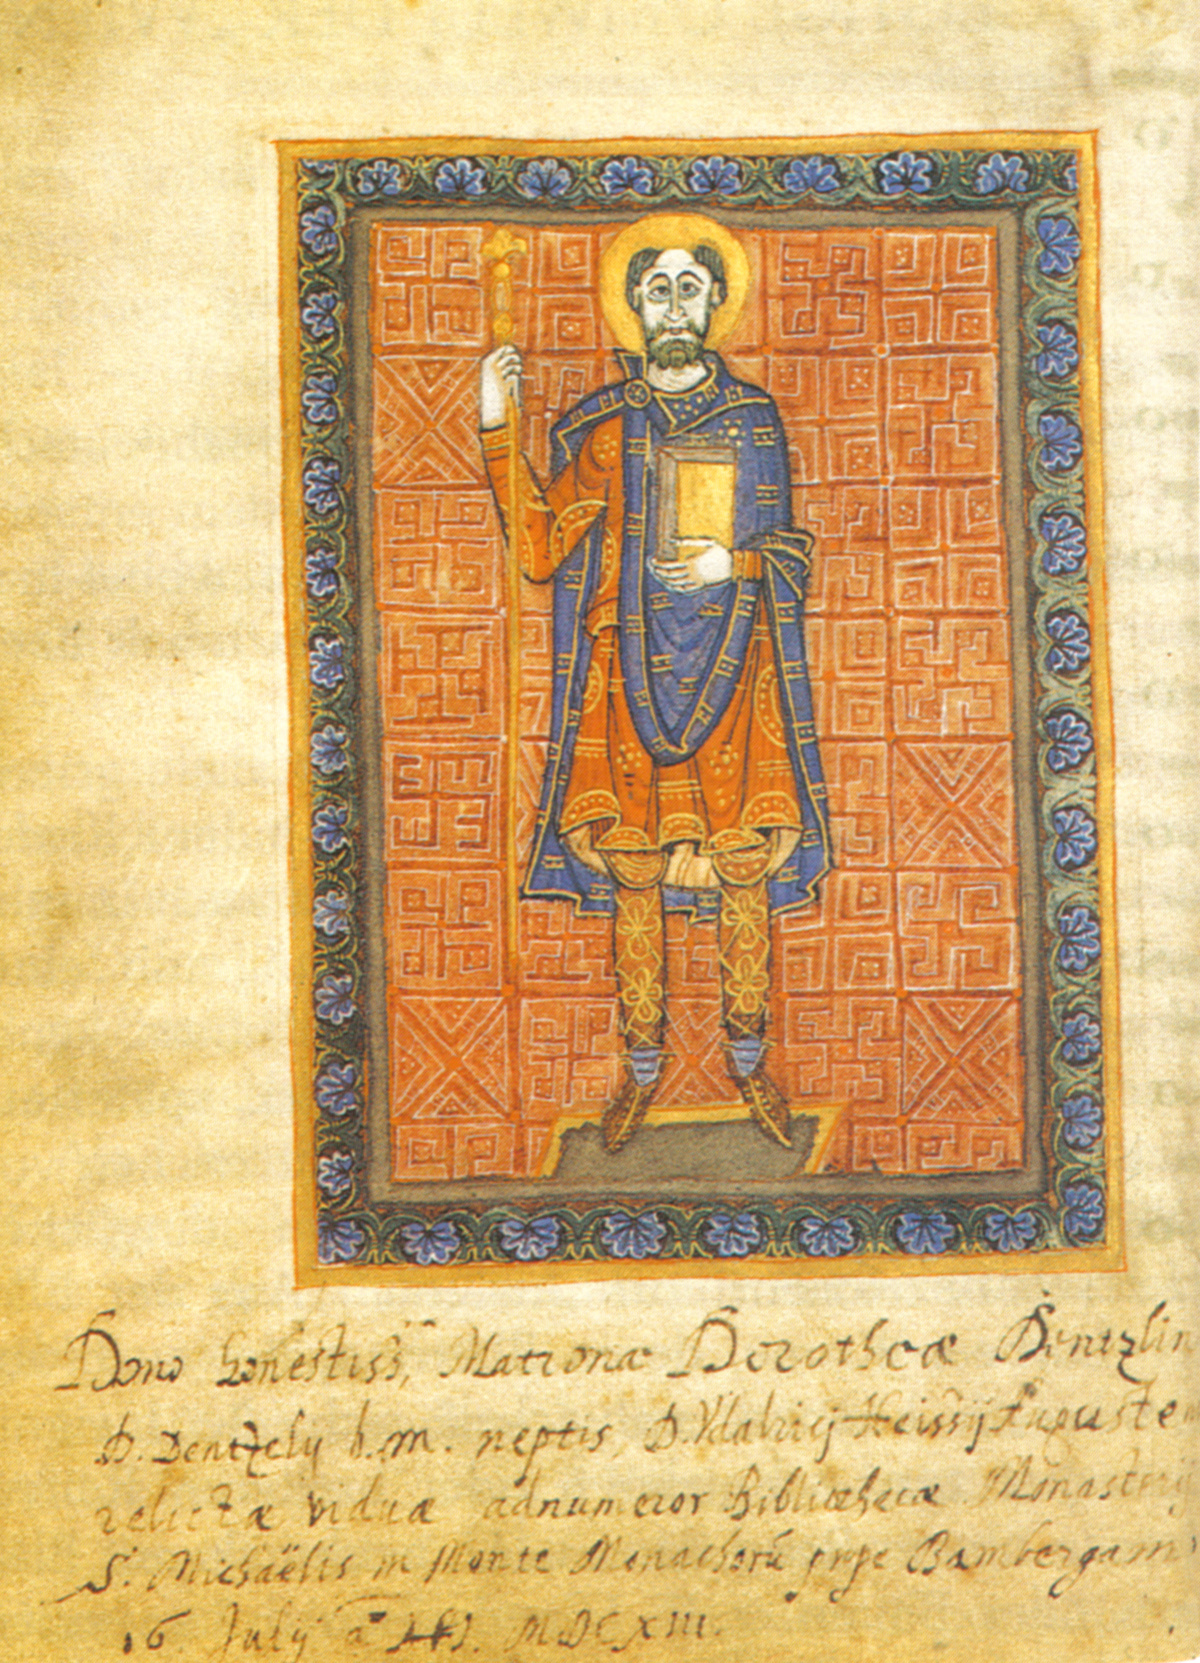 Dono honestiss, Matronæ Dorotheæ Dentzlin
D. Dentzelij b.m. neptis, D. Vdalricj Heissij Auguste
relictæ viduæ adnumeror Bibliothecæ Monasterij
S. Michaëlis in Monte Monachorū prope Bambergam
16. Julij a° MDCXIII.